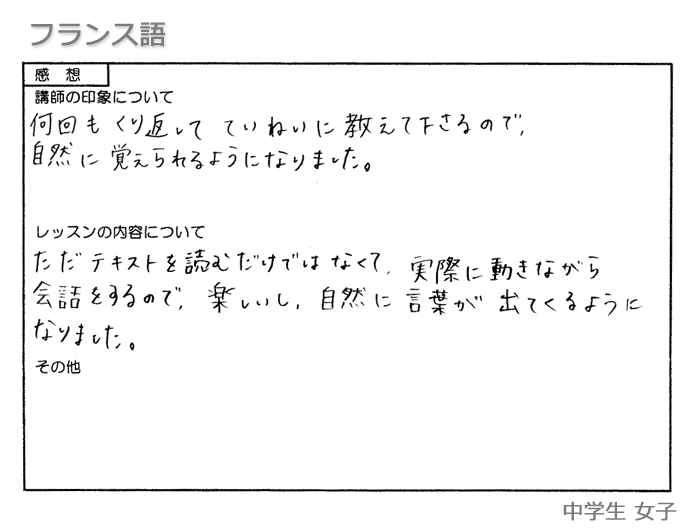 フランス語
感 想
講師の印象について
何回もくり返して ていねいに教えて下さるので、
自然に覚えられるようになりました。
レッスンの内容について
ただテキストを読むだけではなくて、実際に動きながら
会話をするので、楽しいし、自然に言葉が出てくるように
なりました。
その他
中学生 女子